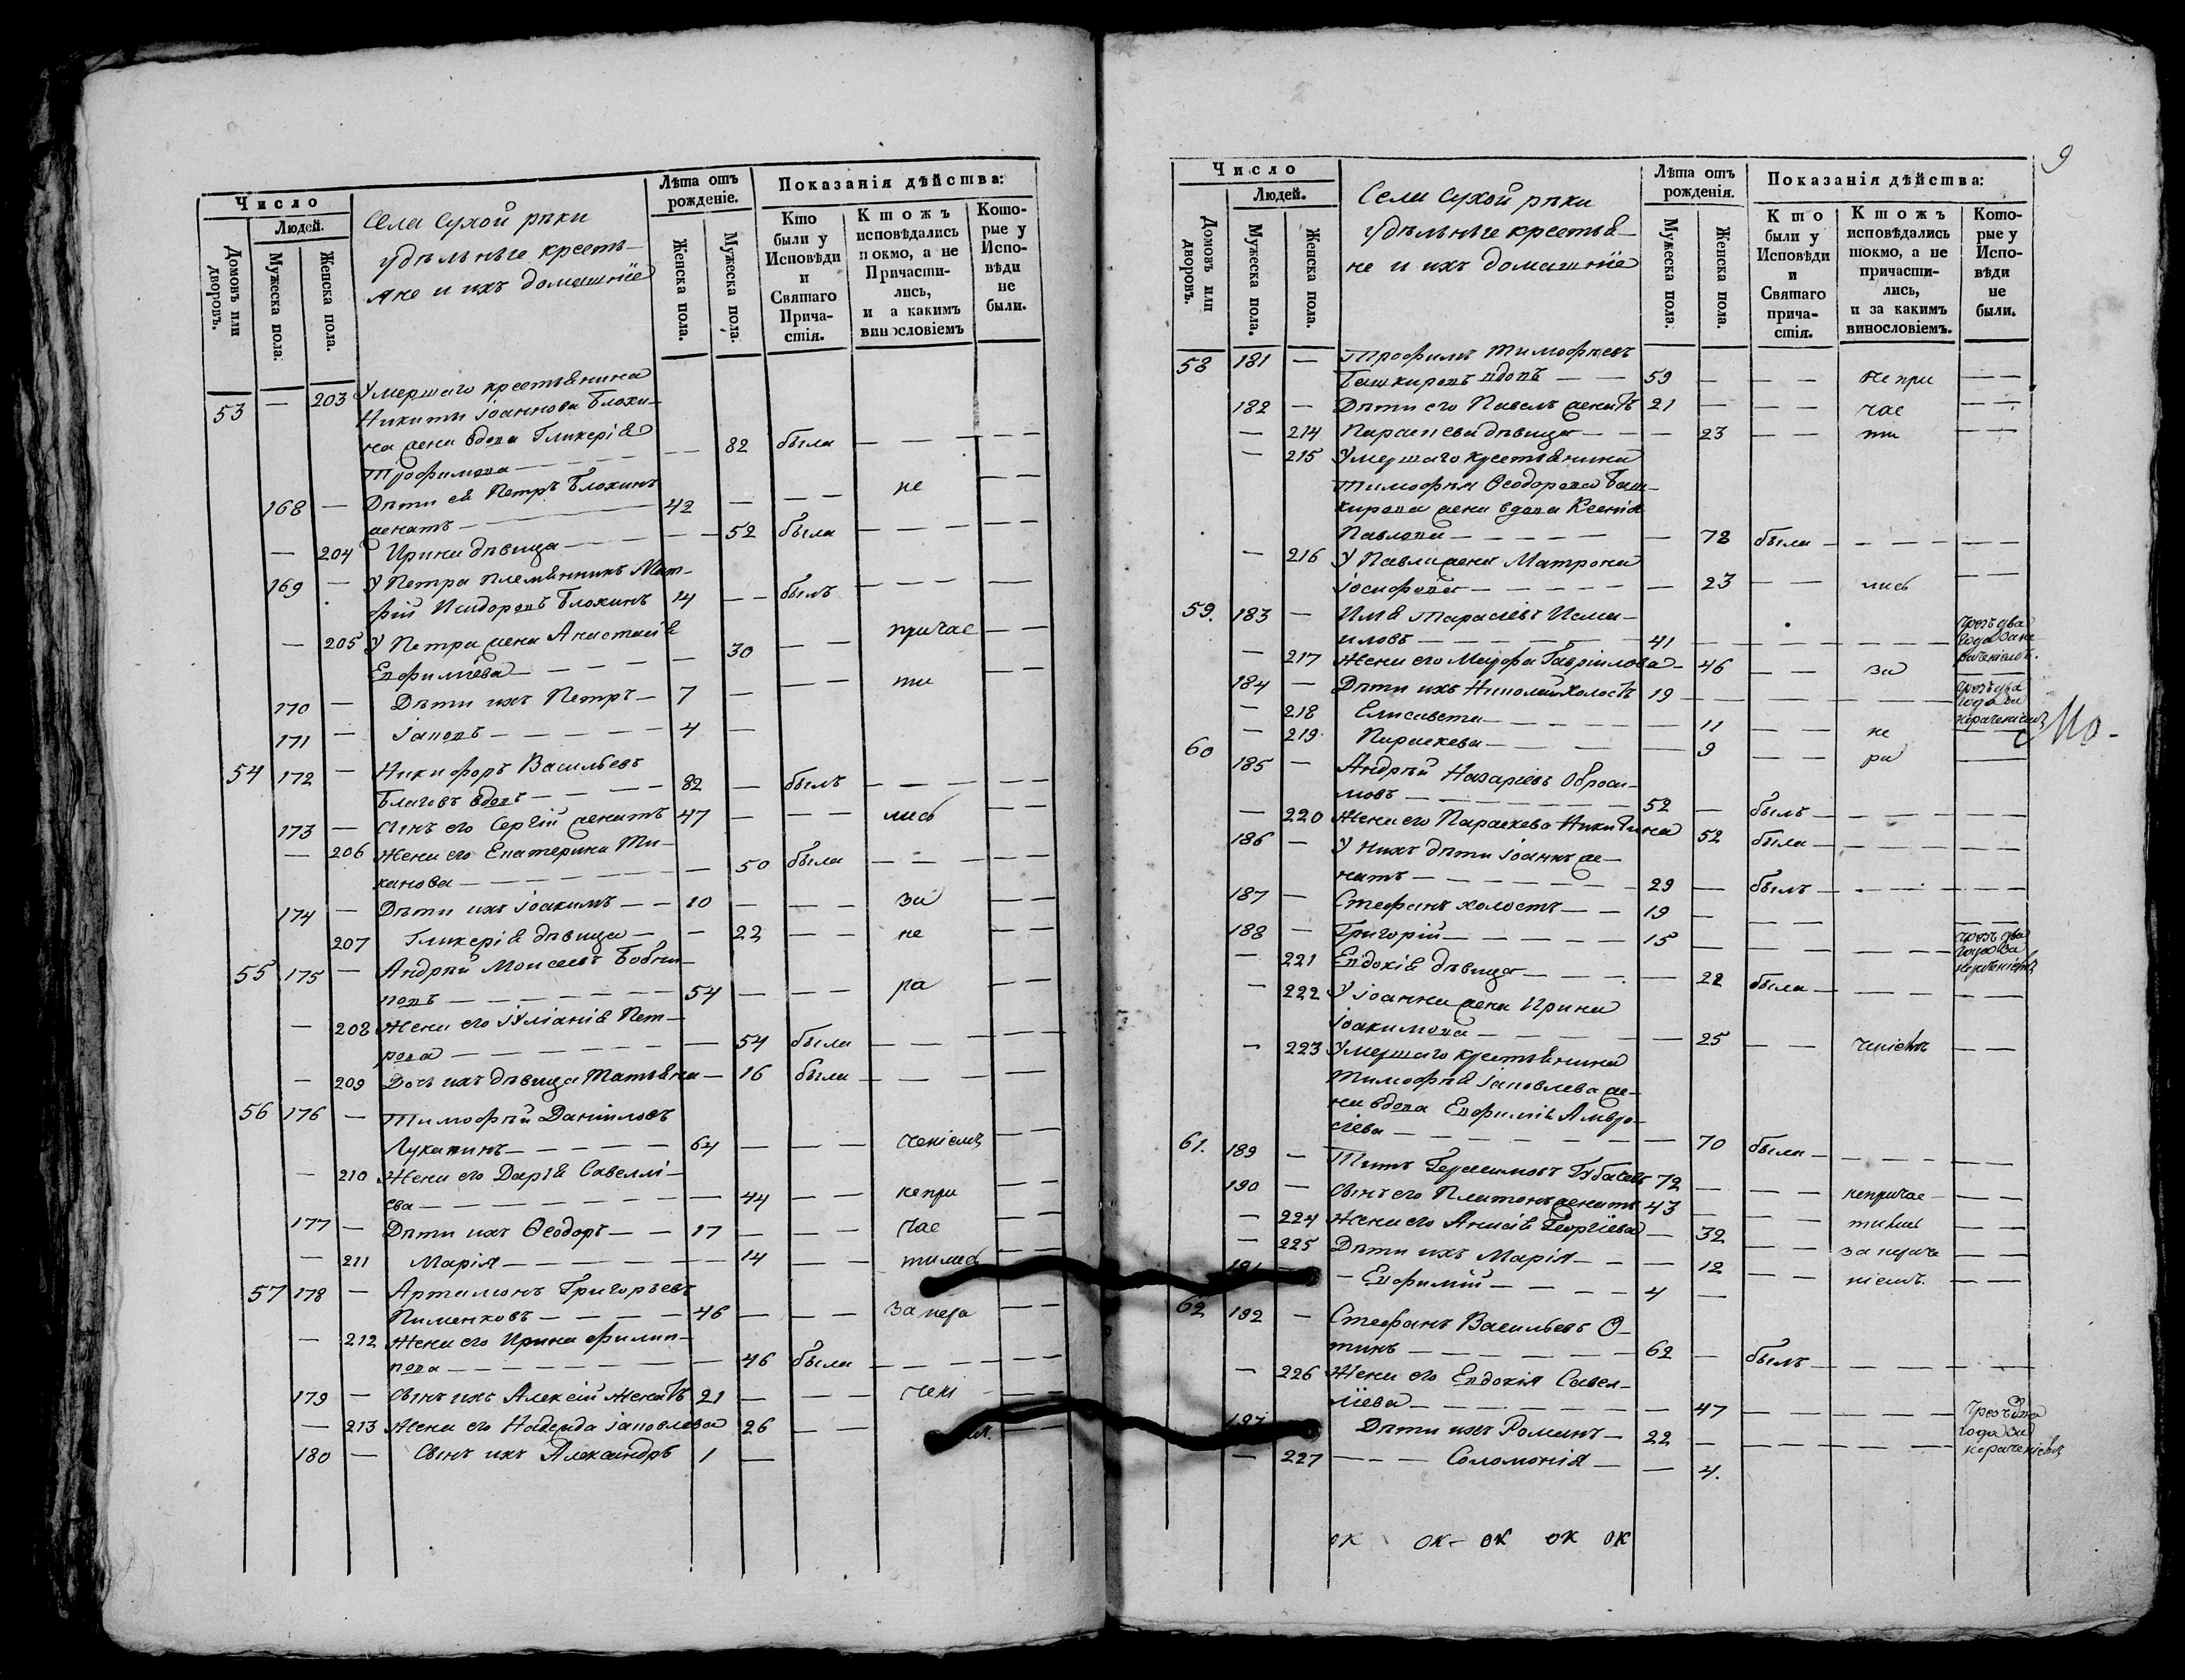 Число
Людей.
Домовъ или дворовъ.
Мужеска пола.
Женска пола.
Села Сухой рѣки
удѣльные кресть-
яне и ихъ домашніе
Лѣта отъ рожденіе.
Женска пола.
Мужеска пола.
Показанія дѣйства:
Кто были у Исповѣди и Святаго Прича-стія.
Ктожъ исповѣдались покмо, а не Причасти-лись, и а какимъ винословіемъ
Кото-рые у Испо-вѣди не были.
53 — 203 Умершаго крестьянина
Никиты Іоаннова Блохи-
на жена вдова Гликерія
Трофимова — — 82 была — — —
168 — Дѣти ея Петръ Блохинъ
женатъ — 42 — — — не — —
— 204 Ирина дѣвица — — 52 была — — —
169 — У Петра племянникъ Мат-
фій Исидоровъ Блохинъ 14 — — былъ — — —
— 205 У Петра жена Анастасія
Евфиміева — — 30 — — причас — —
170 — Дѣти ихъ Петръ — 7 — — — ти — —
171 — Іаковъ — 4 —
54 172 — Никифоръ Васильевъ
Благовъ вдовъ — 82 — былъ — — —
173 — Сынъ его Сергій женатъ 47 — — — лись — —
— 206 Жена его Екатерина Ти-
ханова — — 50 была — — —
174 — Дѣти ихъ Іоакимъ — 10 — — — за — —
207 Гликерія дѣвица — — 22 — — не — —
55 175 — Андрей Моисеевъ Бобы-
повъ — 54 — — — ра — —
— 208 Жена его Іуліанія Пет-
рова — — 54 была — — —
— 209 Дочь ихъ дѣвица Татьяна — 16 была — — —
56 176 — Тимофей Даніиловъ
Лукапинъ — 64 — — — ченіемъ — —
— 210 Жена его Дарія Савеллі-
ева — — 44 — — непри — —
177 — Дѣти ихъ Ѳеодоръ — 17 — — — час — —
— 211 Марія — — 14 — — тились — —
57 178 — Артамонъ Григорьевъ
Пименковъ — 46 — — — за нера — —
— 212 Жена его Ирина Филип-
пова — — 46 была — — —
179 — Сынъ ихъ Алексій женатъ 21 — — — чені — —
— 213 Жена его Надежда Іаковлева 26 — — — —
180 — Сынъ ихъ Александръ 1 —
9
Число
Людей.
Домовъ или дворовъ.
Мужеска пола.
Женска пола.
Села Сухой рѣки
удѣльные крестья-
не и ихъ домашніе
Лѣта отъ рожденія.
Мужеска пола.
Женска пола.
Показанія дѣйства:
Кто были у Исповѣди и Святаго прича-стія.
Ктожъ исповѣдались шокмо, а не причасти-лись, и за какимъ винословіемъ.
Кото-рые у Испо-вѣди не были.
58 181 — Трофимъ Тимофеевъ
Башкировъ вдовъ — 59 — — — не при — —
182 — Дѣти его Павелъ женатъ 21 — — — час — —
— 214 Параскева дѣвица — — 23 — — ти — —
— 215 Умершаго крестьянина
Тимофея Ѳеодорова Баш-
кирова жена вдова Ксенія
Павлова — — 72 была — — —
— 216 У Павла жена Матрона
Іосифова — — 23 — — лись — —
59. 183 — Илія Тарасіевъ Исма-
иловъ — 41 — — — чрезъ два года за нераченіемъ.
— 217 Жена его Марфа Гавріилова — 46 — — за —
184 — Дѣти ихъ Николай холостъ 19 — — — чрезъ два года за нераченіемъ
— 218 Елисавета — — 11 — — не — —
— 219 Параскева — — 9 — — ра —
Мо-
60 185 — Андрей Назаріевъ Оброси-
мовъ — 52 — былъ — — —
— 220 Жена его Параскева Никитина 52 была — — —
186 — У нихъ дѣти Іоаннъ же-
натъ — 29 — былъ — — —
187 — Стефанъ холостъ — 19 — — — —
188 — Григорій — 15 — — — чрезъ два года за нераченіемъ
— 221 Евдокія дѣвица — — 22 была — — —
— 222 У Іоанна жена Ирина
Іоакимова — — 25 — — ченіемъ — —
— 223 Умершаго крестьянина
Тимофея Іаковлева же-
на вдова Евфимія Амвро-
сіева — — 70 была — — —
61. 189 — Титъ Герасимовъ Губачевъ 72 — — — непричас — —
190 — Сынъ его Платонъ женатъ 43 — — — тились — —
— 224 Жена его Анисія Георгіева — 32 — — за нераче — —
— 225 Дѣти ихъ Марія — — 12 — — ніемъ — —
191 — Евфимій — 4 —
62 192 — Стефанъ Васильевъ О-
тинъ — 62 — былъ — — —
— 226 Жена его Евдокія Савел-
ліева — — 47 — — — чрезъ два года за нераченіемъ
193 Дѣти ихъ Романъ — 22 — — — —
— 227 — Соломонія — — 4.
ок ок- ок ок ок